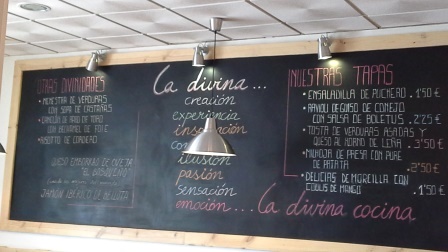 OTRAS DIVINIDADES
• MENESTRA DE VERDURAS
CON SOPA DE CASTAÑAS
CON BECHAMEL DE FOIE
• RISOTTO DE CORDERO
QUESO EMBORRADO DE OVEJA
JAMÓN IBÉRICO DE BELLOTA
La divina...
creación
experiencia
inspiración
ilusión
pasión
sensación
emoción... La divina cocina
NUESTRAS TAPAS
• ENSALADILLA DE PUCHERO .1'50€
• RAVIOLI DE GUISO DE CONEJO
CON SALSA DE BOLETUS. 2'25€
• TOSTA DE VERDURAS ASADAS Y
QUESO AL HORNO DE LEÑA. 3'50€
DE PATATA 2'50€
• DELICIAS DE MORCILLA CON
COULIS DE MANGO .1'50€